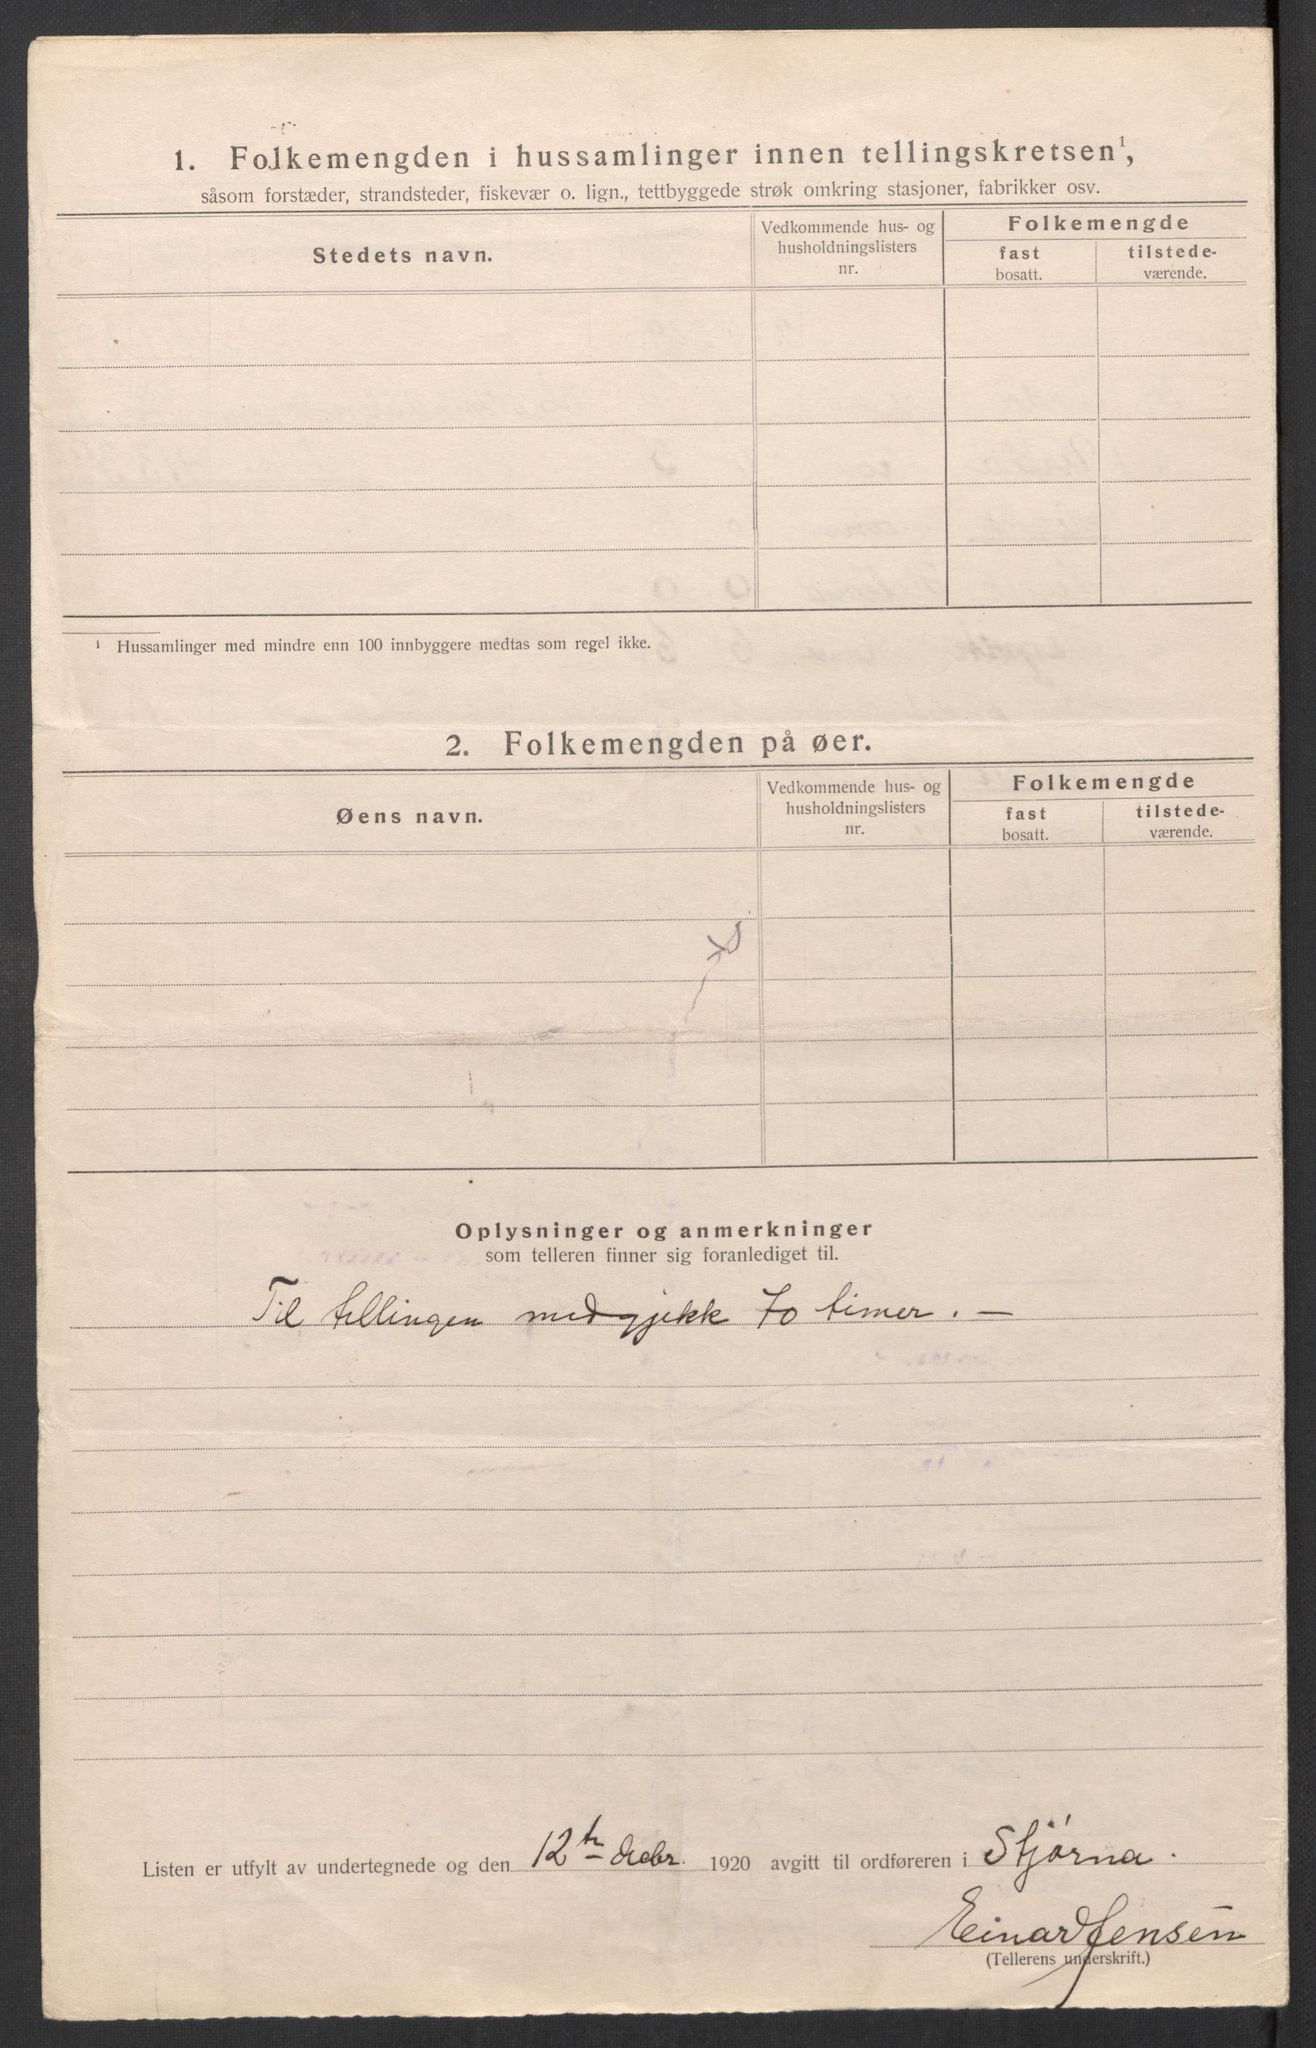 1. Folkemengden i hussamlinger innen tellingskretsen¹,
såsom forstæder, strandsteder, fiskevær o. lign., tettbyggede strøk omkring stasjoner, fabrikker osv.
Stedets navn.
Vedkommende hus- og
husholdningslisters
nr.
Folkemengde
fast
bosatt.
tilstede-
værende.
¹ Hussamlinger med mindre enn 100 innbyggere medtas som regel ikke.
2. Folkemengden på øer.
Øens navn.
Vedkommende hus- og
husholdningslisters
nr.
Folkemengde
fast
bosatt.
tilstede-
værende.
Oplysninger og anmerkninger
som telleren finner sig foranlediget til.
Til tellingen medgjekk 70 timer. —
Listen er utfylt av undertegnede og den 12te decbr. 1920 avgitt til ordføreren i Stjørna.
Einar Jensen
(Tellerens underskrift.)